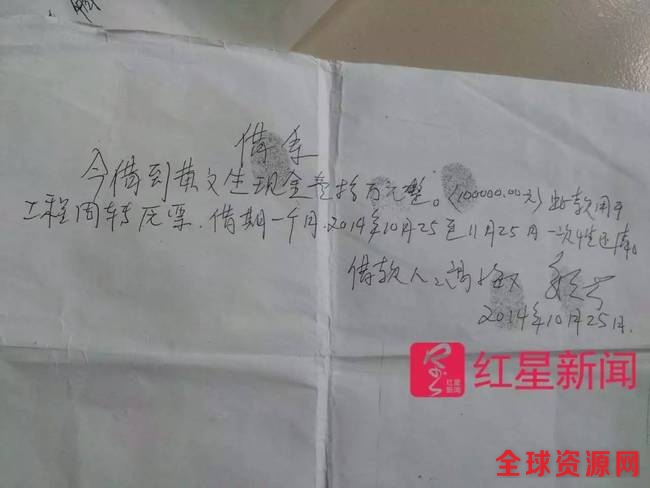 借条
今借到黄文生现金壹拾万元整。(100000.00元) 此款用于
工程周转 借期一个月.2014年10月25至11月25日一次性还清。
借款人:
2014年10月25日.
红星新闻
红星
新闻
全球资源网